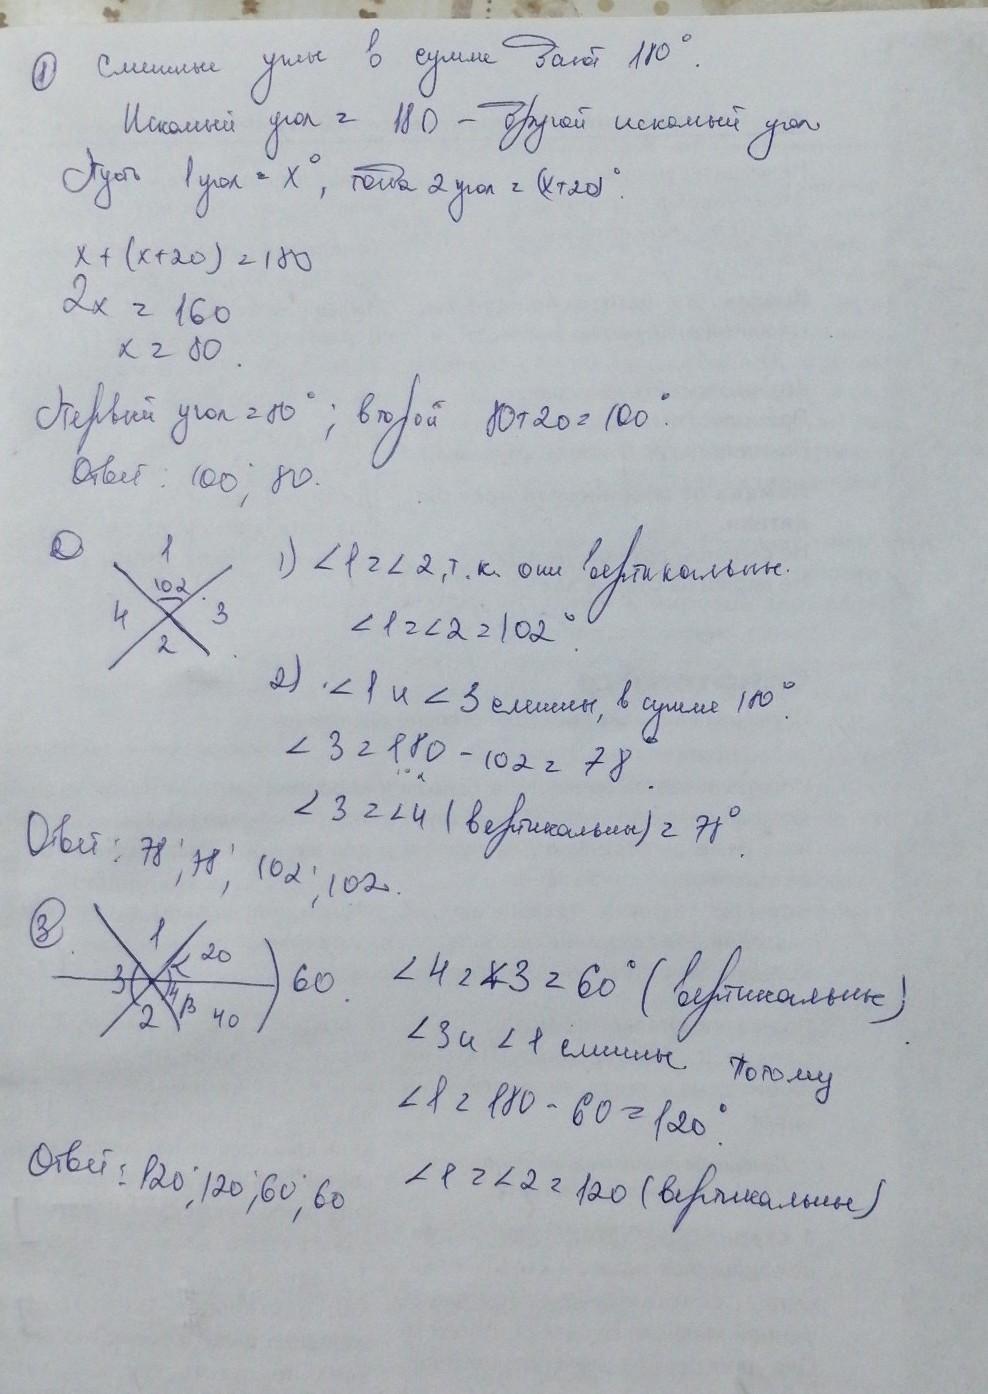 ① Смежные углы в сумме дают 180°.
Искомый угол = 180 - другой искомый угол
Пусть 1 угол = x°, тогда 2 угол = (x+20)°.
x + (x+20) = 180
2x = 160
x = 80.
Первый угол = 80°; второй 80+20=100°.
Ответ: 100; 80.
②
1
102
4 3
2
1) ∠1=∠2, т.к. они вертикальны.
∠1=∠2=102°.
2) ∠1 и ∠3 смежны, в сумме 180°.
∠3 = 180 - 102 = 78°.
∠3=∠4 (вертикальны) = 78°.
Ответ: 78; 78; 102; 102.
③
1
α 20
3 60.
4 β 40
2
∠4=∠3=60° (вертикальные)
∠3 и ∠1 смежны потому
∠1 = 180 - 60 = 120°.
∠1=∠2=120 (вертикальны)
Ответ: 120; 120; 60; 60